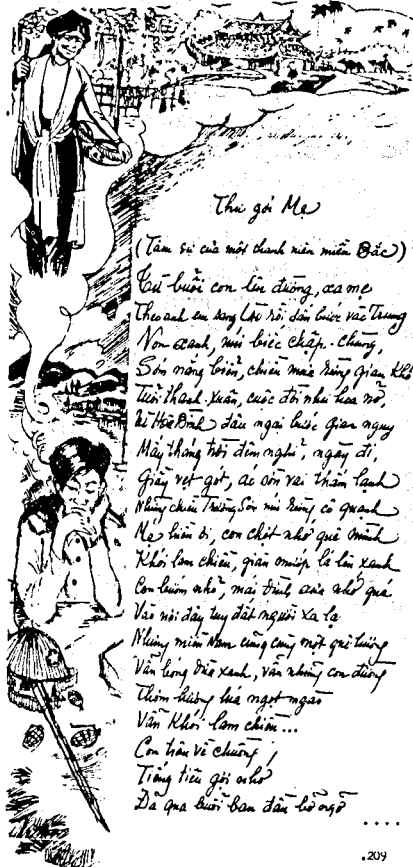 Thư gởi Mẹ
(Tâm sự của một thanh niên miền Bắc)
Từ buổi con lên đường, xa mẹ
Theo anh em sang Lào rồi dần bước vào Trung
Non xanh, núi biếc chập-chùng,
Sớm nắng biển, chiều mưa rừng gian khổ
Tuổi thanh-xuân, cuộc đời như hoa nở,
Vì Hoà Bình đâu ngại bước gian nguy
Mấy tháng trời đêm nghỉ, ngày đi,
Giày vẹt gót, áo sờn vai thấm lạnh
Những chiều Trường Sơn núi rừng cô quạnh
Mẹ hiền ơi, con chợt nhớ quê mình
Khói lam chiều, giàn mướp lá lên xanh
Con bướm nhỏ, mái đình, nhớ quá
Vào nơi đây tuy đất người xa lạ
Nhưng miền Nam cũng cùng một quê hương
Vẫn bóng dừa xanh, vẫn những con đường
Thơm hương lúa ngọt ngào
Vẫn khói lam chiều...
Con trâu về chuồng,
Tiếng tiêu gợi nhớ
Đã qua buổi ban đầu bỡ ngỡ
....
.209